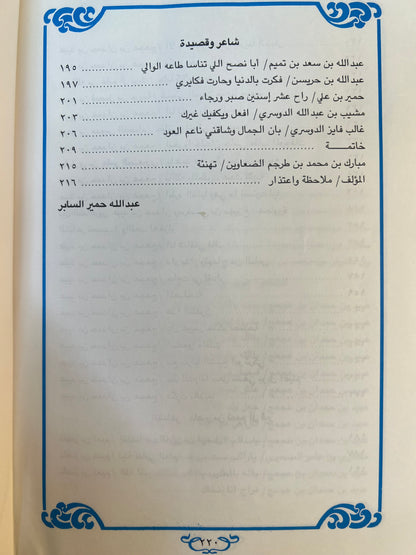 شاعر وقصيدة
عبدالله بن سعد بن تميم/ أبا نصح اللي تناسا طاعه الوالي ................ ١٩٥
عبدالله بن حريسن/ فكرت بالدنيا وحارت فكايري ................ ١٩٧
حمير بن علي/ راح عشر إسنين صبر ورجاء ................ ٢٠١
مشيب بن عبدالله الدوسري/ افعل ويكفيك غيرك ................ ٢٠٣
غالب فايز الدوسري/ بان الجمال وشاقني ناعم العود ................ ٢٠٦
خاتمـــــة ................ ٢٠٩
مبارك بن محمد بن طرجم الضعاوين/ تهنئة ................ ٢١٥
المؤلف/ ملاحظة واعتذار ................ ٢١٦
عبدالله حمير السابر
٢٢٠